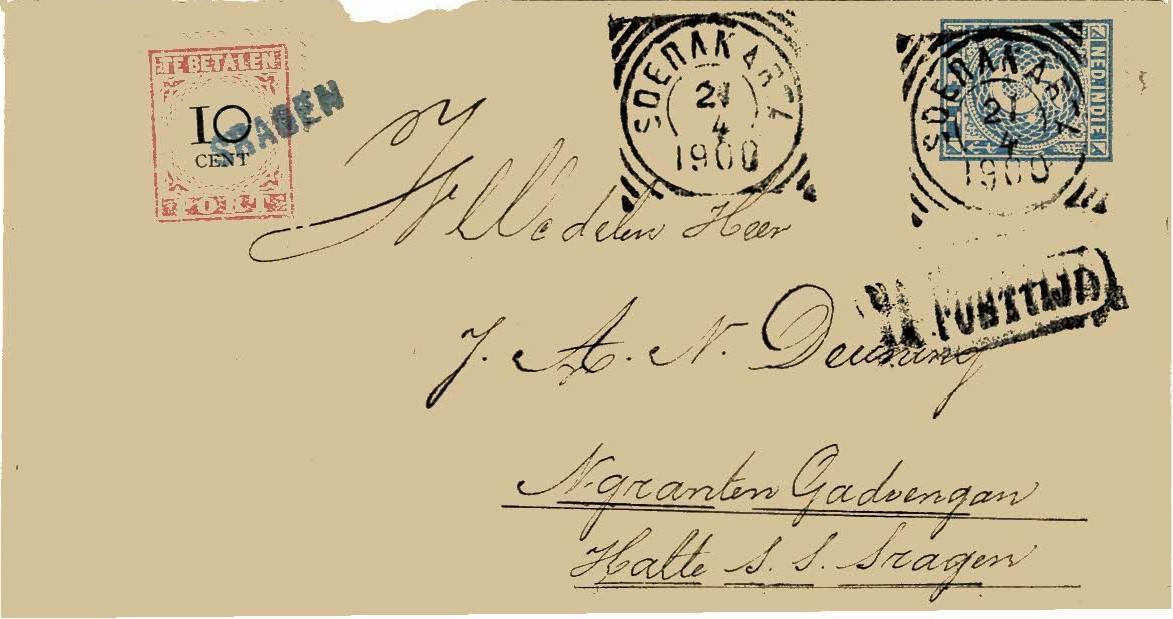 TE BETALEN
10
CENT
PORT
SRAGEN
SOERAKARTA
21
4
1900
NED. INDIE
SOERAKARTA
21
4
1900
NA PORTTIJD
WelEdelen Heer
J. A. N. Deuning
Ngranten Gadoengan
Halte S. S. Sragen